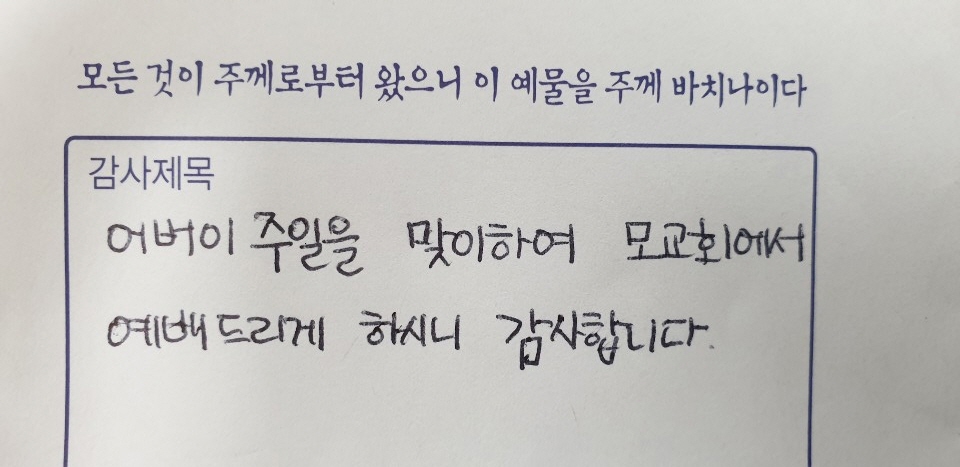 모든 것이 주께로부터 왔으니 이 예물을 주께 바치나이다
감사제목
어버이 주일을 맞이하여 모교회에서
예배드리게 하시니 감사합니다.